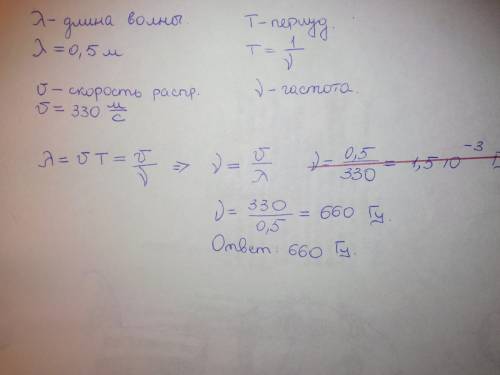 λ - длина волны.
λ = 0,5 м
T - период.
T = 1/ν
υ - скорость распр.
υ = 330 м/с
ν - частота.
λ = υ T = υ/ν ⇒ ν = υ/λ
ν = 0,5/330 = 1,5·10⁻³
ν = 330/0,5 = 660 Гц.
Ответ: 660 Гц.